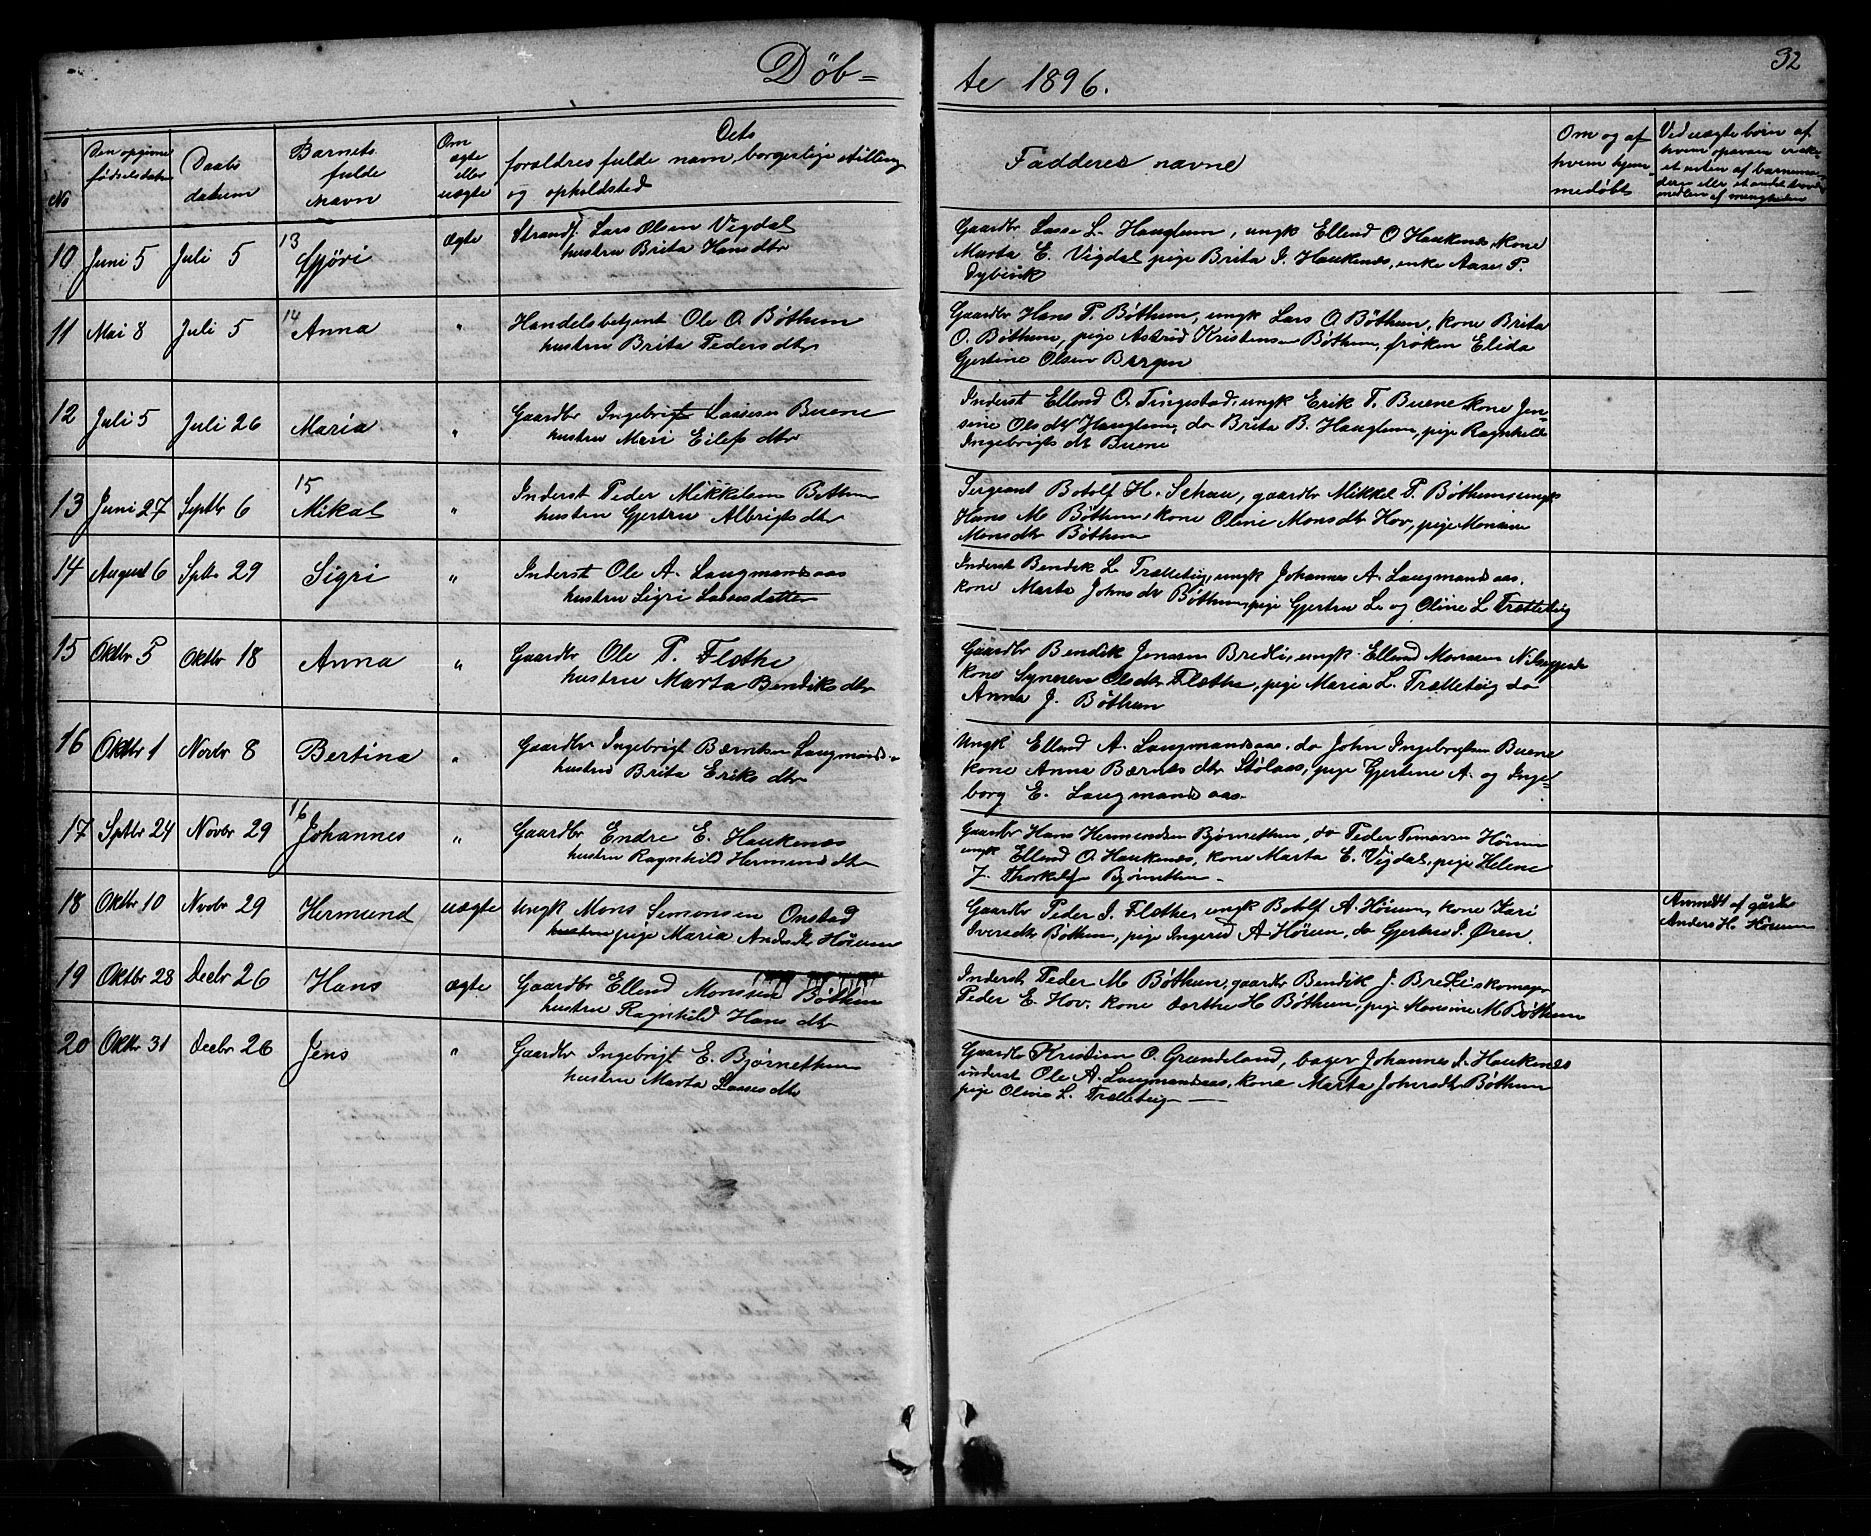 Døb= te 1896. 32
No
Den opgivne fødselsdatum
Daabs datum
Barnets fulde navn
Om ægte eller uægte
Dets forældres fulde navn, borgerlige stilling og opholdsted
Fadderes navne
Om og af hvem hjemmedøbt
Ved uægte børn af
10 Juni 5 Juli 5 13 Gjøri Ægte Strands. Lars Olsen Vigdal
hustru Brita Hansdtr
Gaardbr Lasse L. Hauglum, ungk Ellend O Haukenes, kone
Marta E. Vigdal pige Brita I. Haukenes, enke Aase P.
Dybvik
11 Mai 8 Juli 5 14 Anna " Handelsbetjent Ole O. Bøthun
hustru Brita Pedersdtr
Gaardbr Hans P. Bøthum, ungk Lars O Bøthum, kone Brita
O. Bøthum, pige Astrid Kristensen Bøthum, frøken Elida
Gjertine Olsen Bergen
12 Juli 5 Juli 26 Maria " Gaardbr Ingebrigt Lassesen Buene
hustru Mari Eilefsdtr
Inderst Ellend O. Tingestad, ungk Erik T. Buene kone Jen-
sine Olsdtr Hauglum, do Brita B. Hauglum, pige Ragnhild
Ingebrigtsdt Buene
13 Juni 27 Septbr 6 15 Mikal " Inderst Peder Mikkelsen Bothun
hustru Gjertru Albrigtsdtr
Sergeant Botolf H. Schau, gaardbr Mikkel P. Bøthum, ungk
Hans M Bøthum, kone Oline Monsdtr Hov, pige Monsine
Monsdtr Bøthum
14 August 6 Sptbr 29 Sigri " Inderst Ole A. Laugmandsaas
hustru Sigri Lassesdatter
Inderst Bendik L Trætteteig, ungk Johannes A Laugmandsaas.
kone Marta Johnsdtr Bøthum, pige Gjertru L. og Oline L Trætteteig
15 Oktbr 5 Oktbr 18 Anna " Gaardbr Ole P. Fløthe
hustru Marta Bendiksdtr
Gaardbr Bendik Jensen Bredli, ungk Ellend Monsen
kone Synneva Olsdtr Fløthe, pige Maria L. Trætteteig do
Anna J. Bøthum
16 Oktbr 1 Novbr 8 Bertina " Gaardbr Ingebrigt Bærnsen Laugmands-
hustru Brita Eriksdtr
Ungk Ellend A. Laugmandsaas, do John Ingebrigtsen Buene
kone Anna Bærnesdtr Stølaas, pige Gjertine A. og Inge-
borg E. Laugmandsaas.
17 Sptbr 24 Novbr 29 16 Johannes " Gaardbr Endre E. Haukenes
hustru Ragnhild Hermundsdtr
Gaardbr Hans Hermundsen Bjørnethun, do Peder Tomassen Hørum
ungk Ellend O. Haukenes, kone Marta E. Vigdal, pige Helene
J. Thorkels Bjørnethun
18 Oktbr 10 Novbr 29 Hermund uægte Ungk Mons Simonsen Onstad
hustru pige Maria Andersdt Hørum
Gaardbr Peder I. Fløthe, ungk Botolf A. Hørum, kone Kari
Iversdtr Bøthun, pige Ingerid A. Hørum, do Gjertru I. Øren.
Anmeldt af gårdbr
Anders H. Hørum
19 Oktbr 28 Decbr 26 Hans ægte Gaardbr Ellend Monssen Bøthun
hustru Ragnhild Hansdtr
Inderst Peder M Bøthum, gaardbr Bendik J. Bredli, skomager
Peder E. Hov. kone Dorthe H Bøthum, pige Monsine M Bøthum
20 Oktbr 31 Decbr 26 Jens " Gaardbr Ingebrigt E. Bjørnethun
hustru Marta Lassesdtr
Gaardbr Kristian O. Grændeland, bager Johannes A. Haukenes
inderst Ole A. Laugmandsaas, kone Marta Johnsdtr Bøthum
pige Oline L. Trætteteig